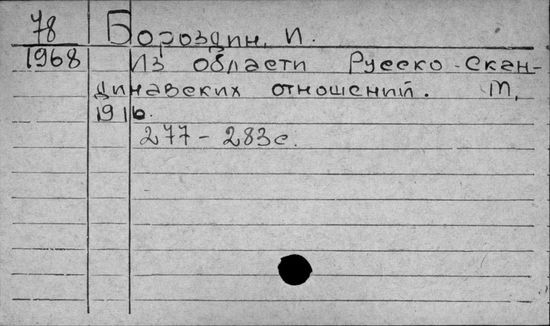 78
1968
Бороздин, И.
Из области Русско-Скан-
динавских отношений. М,
1916.
277-283с.